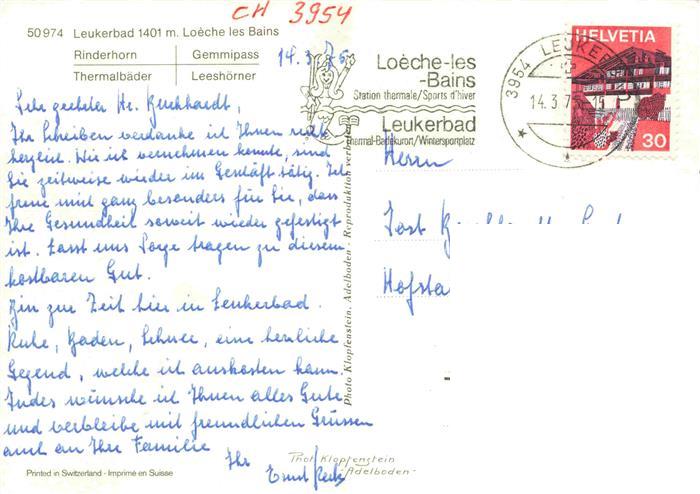 CH 3954
50974 Leukerbad 1401 m. Loèche les Bains
Rinderhorn Gemmipass
Thermalbäder Leeshörner
14.3.75
Loèche-les
-Bains
Station thermale/Sports d'hiver
Leukerbad
Thermal-Badekurort/Wintersportplatz
3954 LEUKER
14.3.75-15
HELVETIA
30
Sehr geehrter Hr. Burkhardt,
Ihr Schreiben verdanke ich Ihnen recht
herzlich. Wie ich vernehmen konnte, sind
Sie zeitweise wieder im Geschäft tätig. Ich
freue mich ganz besonders für Sie, dass
Ihre Gesundheit soweit wieder gefestigt
ist. Lasst uns Sorge tragen zu diesem
kostbaren Gut.
Bin zur Zeit hier in Leukerbad.
Ruhe, Baden, Schnee, eine herrliche
Gegend, welche ich auskosten kann.
Indes wünsche ich Ihnen alles Gute
und verbleibe mit freundlichen Grüssen
auch an Ihre Familie
Ihr
Ernst
Herrn
Jost
Hofsta
Photo Klopfenstein, Adelboden - Reproduktion verboten
Phot. Klopfenstein
- Adelboden -
Printed in Switzerland - Imprimé en Suisse